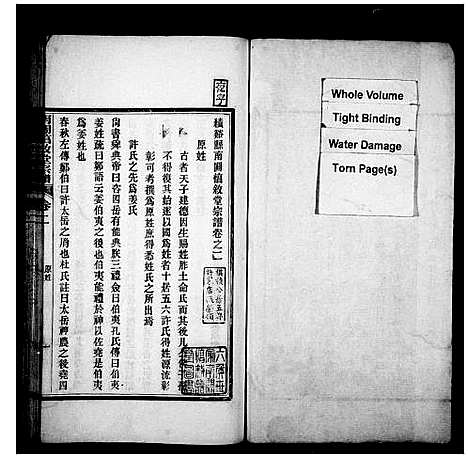 績谿縣南關憞敘堂宗譜卷之二
原姓
古者天子建德因生賜姓胙土命氏而其後兒
不得復其始遂以國為姓者十居五六許氏得姓源流彰
彰可考撰為原姓庶得悉姓氏之所出焉
許氏之先為姜氏
尙書舜典帝曰咨四岳有能典朕三禮僉曰伯夷孔氏傳曰伯夷
姜姓疏曰鄭語云姜伯夷之後也伯夷能禮於神以佐堯是伯夷
為姜姓也
春秋左傳鄭伯曰許太岳之胤也杜氏註曰太岳神農之後堯四
原姓
Whole Volume
Tight Binding
Water Damage
Torn Page(s)